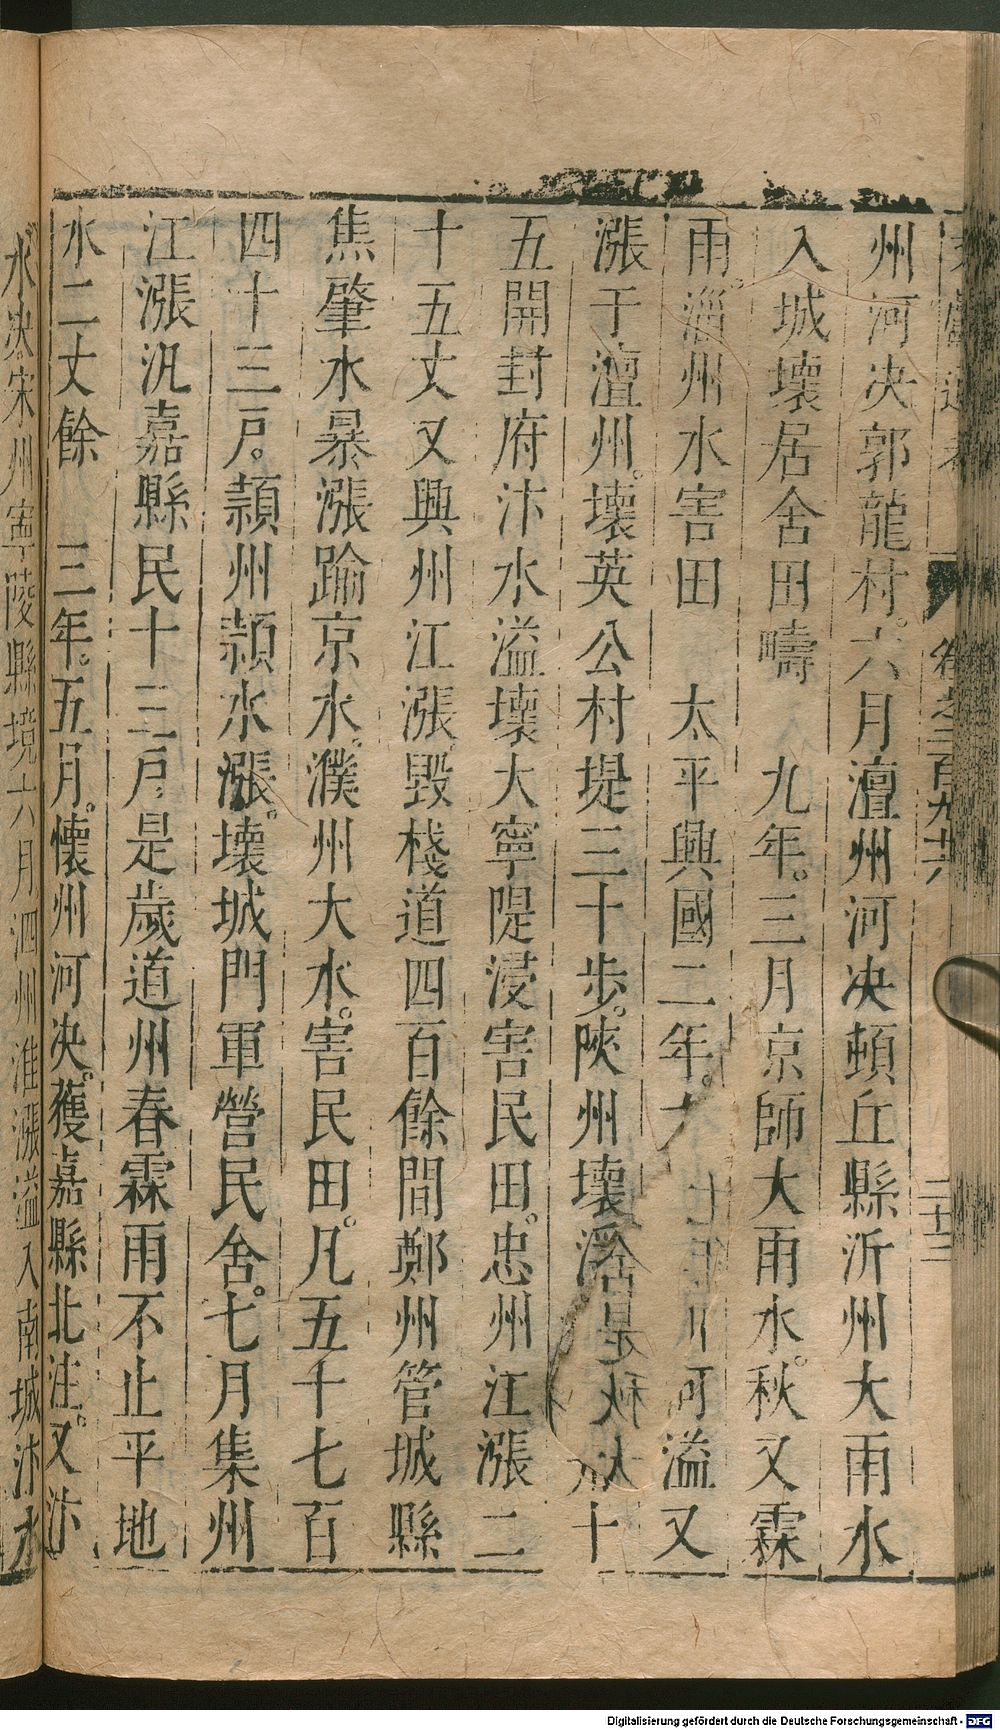 卷之二百九十六
二十三
州河决郭龍村。六月澶州河决頓丘縣沂州大雨水
入城壞居舍田疇 九年。三月京師大雨水。秋又霖
雨。淄州水害田 太平興國二年。 溢又
漲于澶州。壞英公村堤三十步。陝州壞 十
五開封府汴水溢壞大寧隄浸害民田。忠州江漲二
十五丈又興州江漲毀棧道四百餘間鄭州管城縣
焦肇水暴漲踰京水。濮州大水。害民田。凡五千七百
四十三戶。潁州潁水漲。壞城門軍營民舍。七月集州
江漲汎嘉縣民十三戶。是歲道州春霖雨不止平地
水二丈餘 三年。五月。懷州河决。獲嘉縣北注。又汴
水决宋州寧陵縣境六月泗州淮漲溢入南城汴水
Digitalisierung gefördert durch die Deutsche Forschungsgemeinschaft - DFG